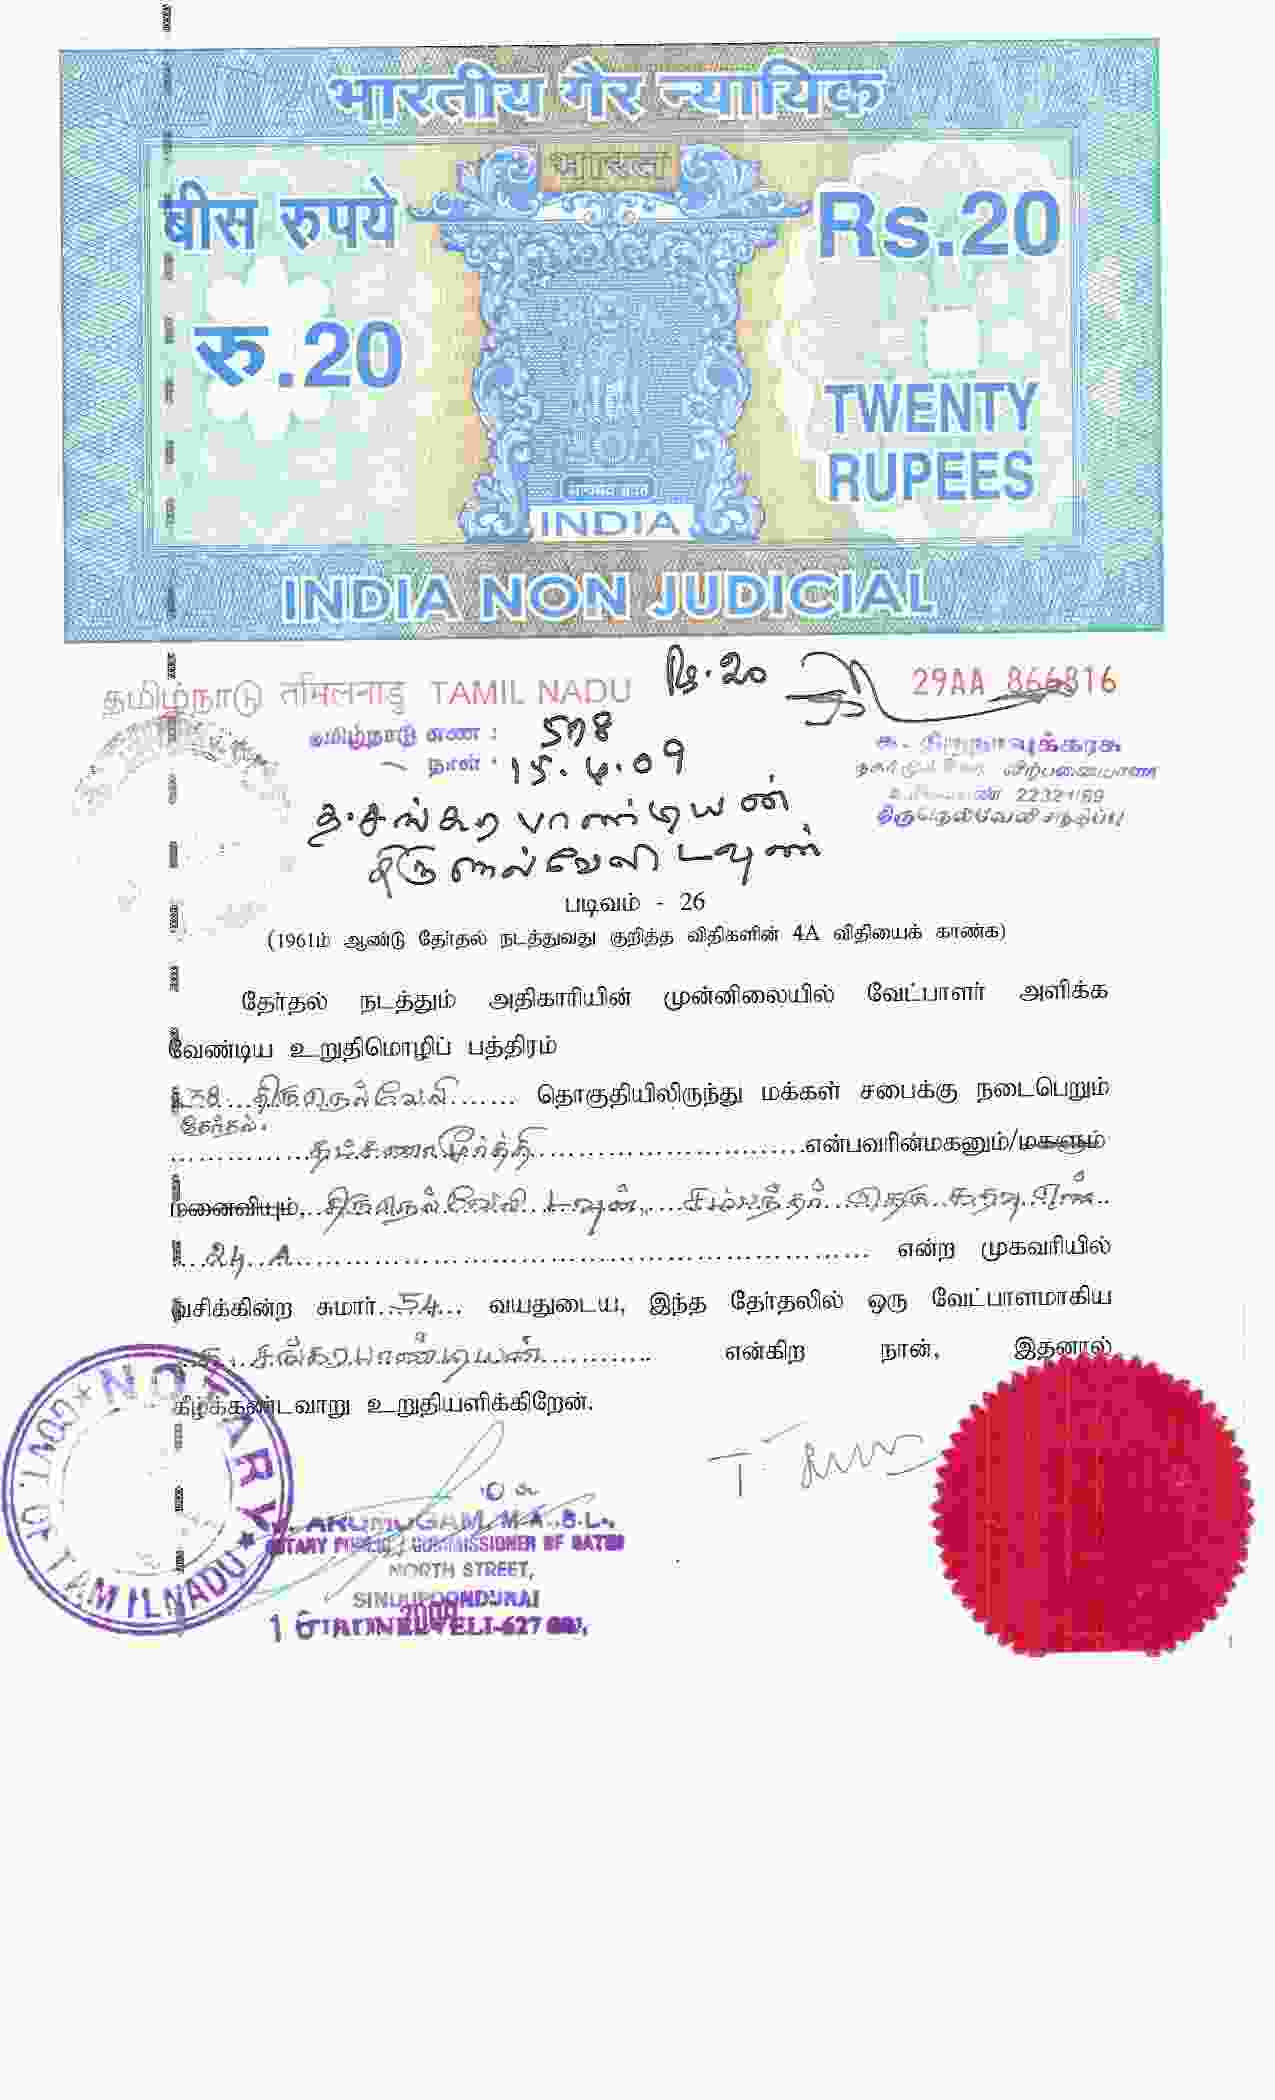 भारतीय गैर न्यायिक
भारत
बीस रुपये
Rs.20
रु.20
TWENTY
RUPEES
सत्यमेव जयते
INDIA
INDIA NON JUDICIAL
Rs.20
தமிழ்நாடு तमिलनाडु TAMIL NADU
29AA 866816
தமிழ்நாடு எண் : 578
நாள் : 15.4.09
த.சங்கரபாண்டியன்
திருநெல்வேலி டவுண்
க. திருநாவுக்கரசு
22321/89
திருநெல்வேலி சந்திப்பு
படிவம் - 26
(1961ம் ஆண்டு தேர்தல் நடத்துவது குறித்த விதிகளின் 4A விதியைக் காண்க)
தேர்தல் நடத்தும் அதிகாரியின் முன்னிலையில் வேட்பாளர் அளிக்க
வேண்டிய உறுதிமொழிப் பத்திரம்
38 திருநெல்வேலி தொகுதியிலிருந்து மக்கள் சபைக்கு நடைபெறும்
தேர்தல்.
தட்சணாமூர்த்தி என்பவரின்மகனும்/மகளும்
மனைவியும், திருநெல்வேலி டவுண், சம்பந்தர் தெரு கதவு எண்
24 A என்ற முகவரியில்
வசிக்கின்ற சுமார் 54 வயதுடைய, இந்த தேர்தலில் ஒரு வேட்பாளமாகிய
த. சங்கரபாண்டியன் என்கிற நான், இதனால்
கீழ்க்கண்டவாறு உறுதியளிக்கிறேன்.
NOTARY
GOVT. OF TAMILNADU
ARUMUGAM, M.A.,B.L.,
NOTARY PUBLIC / COMMISSIONER OF OATHS
NORTH STREET,
SINDUPOONDURAI
TIRUNELVELI-627 001.
2009
1